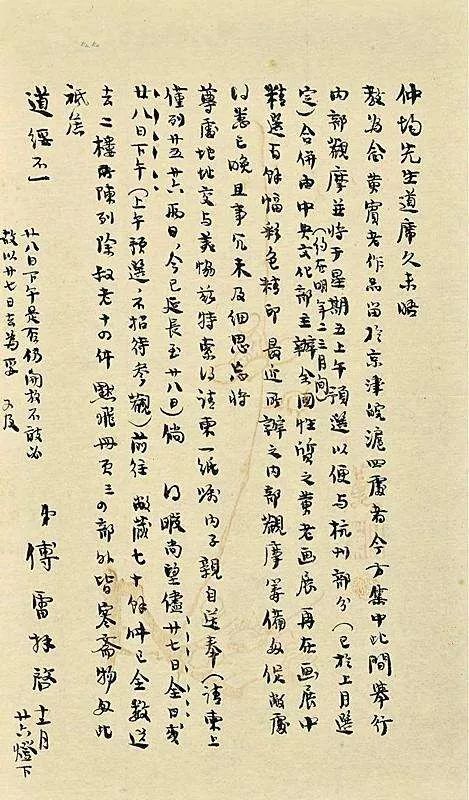 仲均先生道席久未晤
教为念黄賓老作品留於京津皖滬四處者今方集中此間舉行
内部觀摩並将于星期五上午預選以便与杭州部分(已於上月選
定)合併由中央文化部主辦(約在明年二三月間)全國性質之黄老画展再在画展中
精選百餘幅彩色精印最近所辦之内部觀摩籌備匆促敝處
得悉已晚且事冗未及細思忘将
尊處地址交与美協兹特索得請柬一紙嘱内子親自送奉(請柬上
僅列廿五廿六兩日,今已延長至廿八日)倘 得暇尚望儘廿七日全日或
廿八日下午(上午預選,不招待参觀)前往 敝藏七十餘件已全数送
去二樓所陳列除叔老十の件 默飛冊頁三の部外皆寒斋物匆此
祗
道綏不一
弟傅雷拜啓 十一月
廿六燈下
廿八日下午是否仍開放不敢必
故以廿七日去為妥 又及